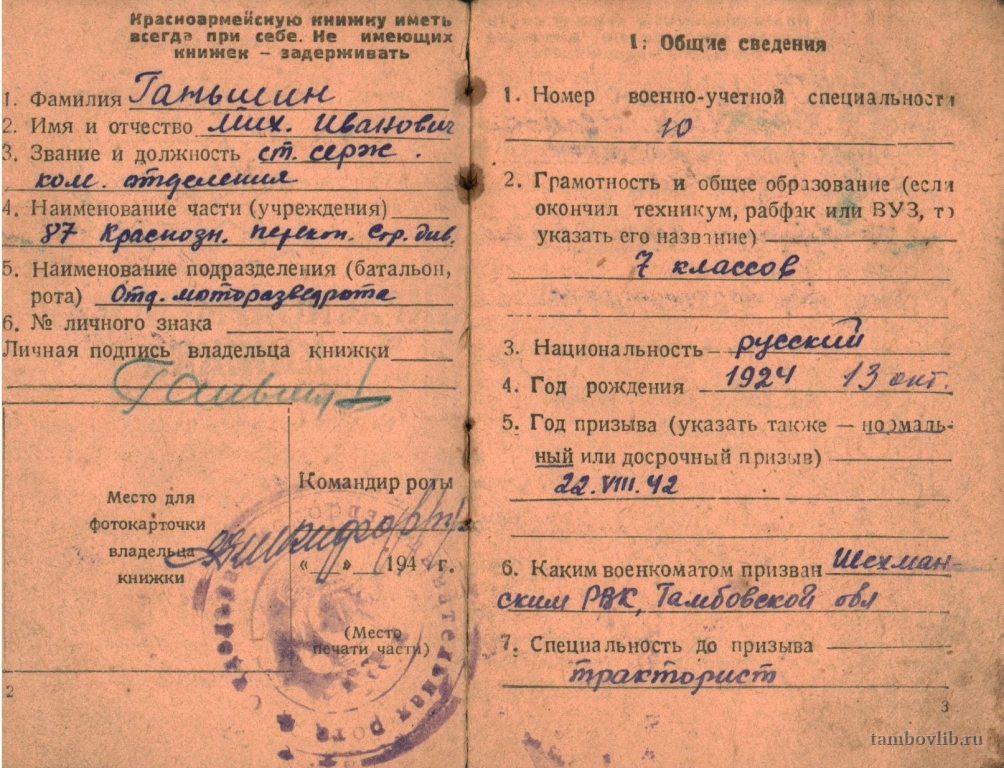 Красноармейскую книжку иметь
всегда при себе. Не имеющих
книжек – задерживать
1. Фамилия Ганьшин
2. Имя и отчество Мих. Иванович
3. Звание и должность ст. серж.
ком. отделения
4. Наименование части (учреждения)
87 Краснозн. перекоп. Стр. див.
5. Наименование подразделения (батальон,
рота) Отд. моторазведрота
6. № личного знака
Личная подпись владельца книжки
Ганьшин
Место для
фотокарточки
владельца
книжки
Командир роты
« » 194 г.
(Место
печати части)
2
1. Общие сведения
1. Номер военно-учетной специальности
10
2. Грамотность и общее образование (если
окончил техникум, рабфак или ВУЗ, то
указать его название)
7 классов
3. Национальность русский
4. Год рождения 1924 13 окт.
5. Год призыва (указать также — нормаль-
ный или досрочный призыв)
22.VIII.42
6. Каким военкоматом призван Шехман-
ским РВК, Тамбовской обл
7. Специальность до призыва
тракторист
3
tambovlib.ru